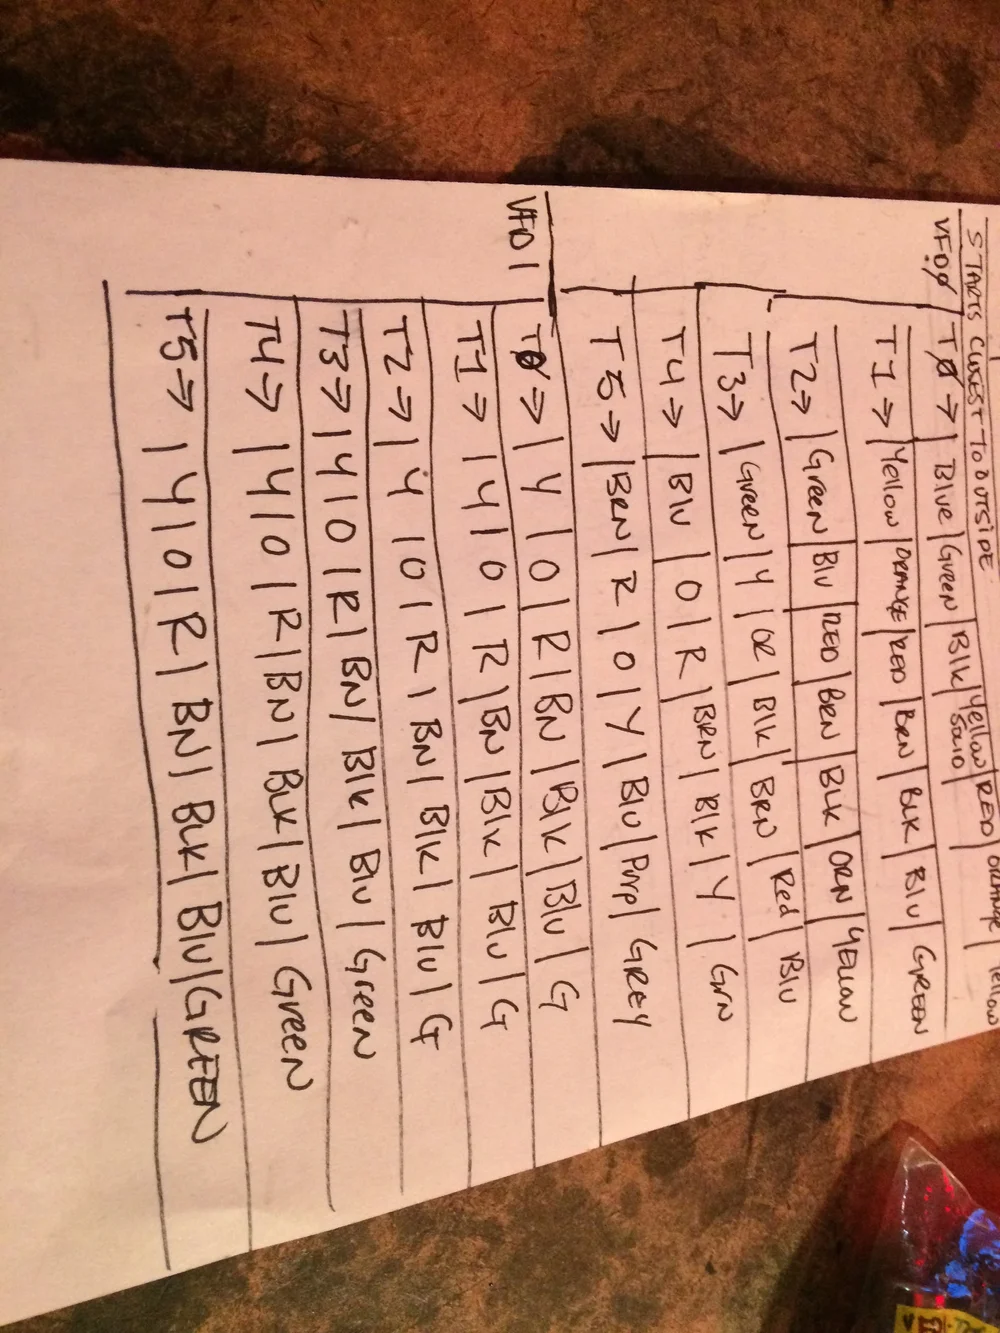 STARTS CLOSEST TO OUTSIDE
VFD:0 T0→ | Blue | Green | Blk | Yellow SOLID | RED | ORANGE | Yellow
T1→ | Yellow | ORANGE | RED | BRN | BLK | BlU | GREEN
T2→ | Green | BlU | RED | BRN | BLK | ORN | YELLOW
T3→ | Green | Y | OR | Blk | BRN | Red | BlU
T4→ | BlU | O | R | BRN | Blk | Y | GRN
T5→ | BRN | R | O | Y | BlU | Purp | GREY
VFD1 T0→ | Y | O | R | BN | Blk | BlU | G
T1→ | Y | O | R | BN | Blk | BlU | G
T2→ | Y | O | R | BN | Blk | BlU | G
T3→ | Y | O | R | BN | Blk | BlU | Green
T4→ | Y | O | R | BN | BLK | BlU | Green
T5→ | Y | O | R | BN | BLK | BlU | GREEN